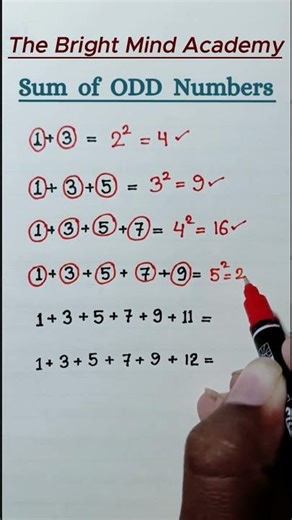 The Bright Mind Academy
Sum of ODD Numbers
1+3 = 2² = 4 ✓
1+3+5 = 3² = 9 ✓
1+3+5+7 = 4² = 16 ✓
1+3+5+7+9 = 5² = 2
1+3+5+7+9+11 =
1+3+5+7+9+12 =